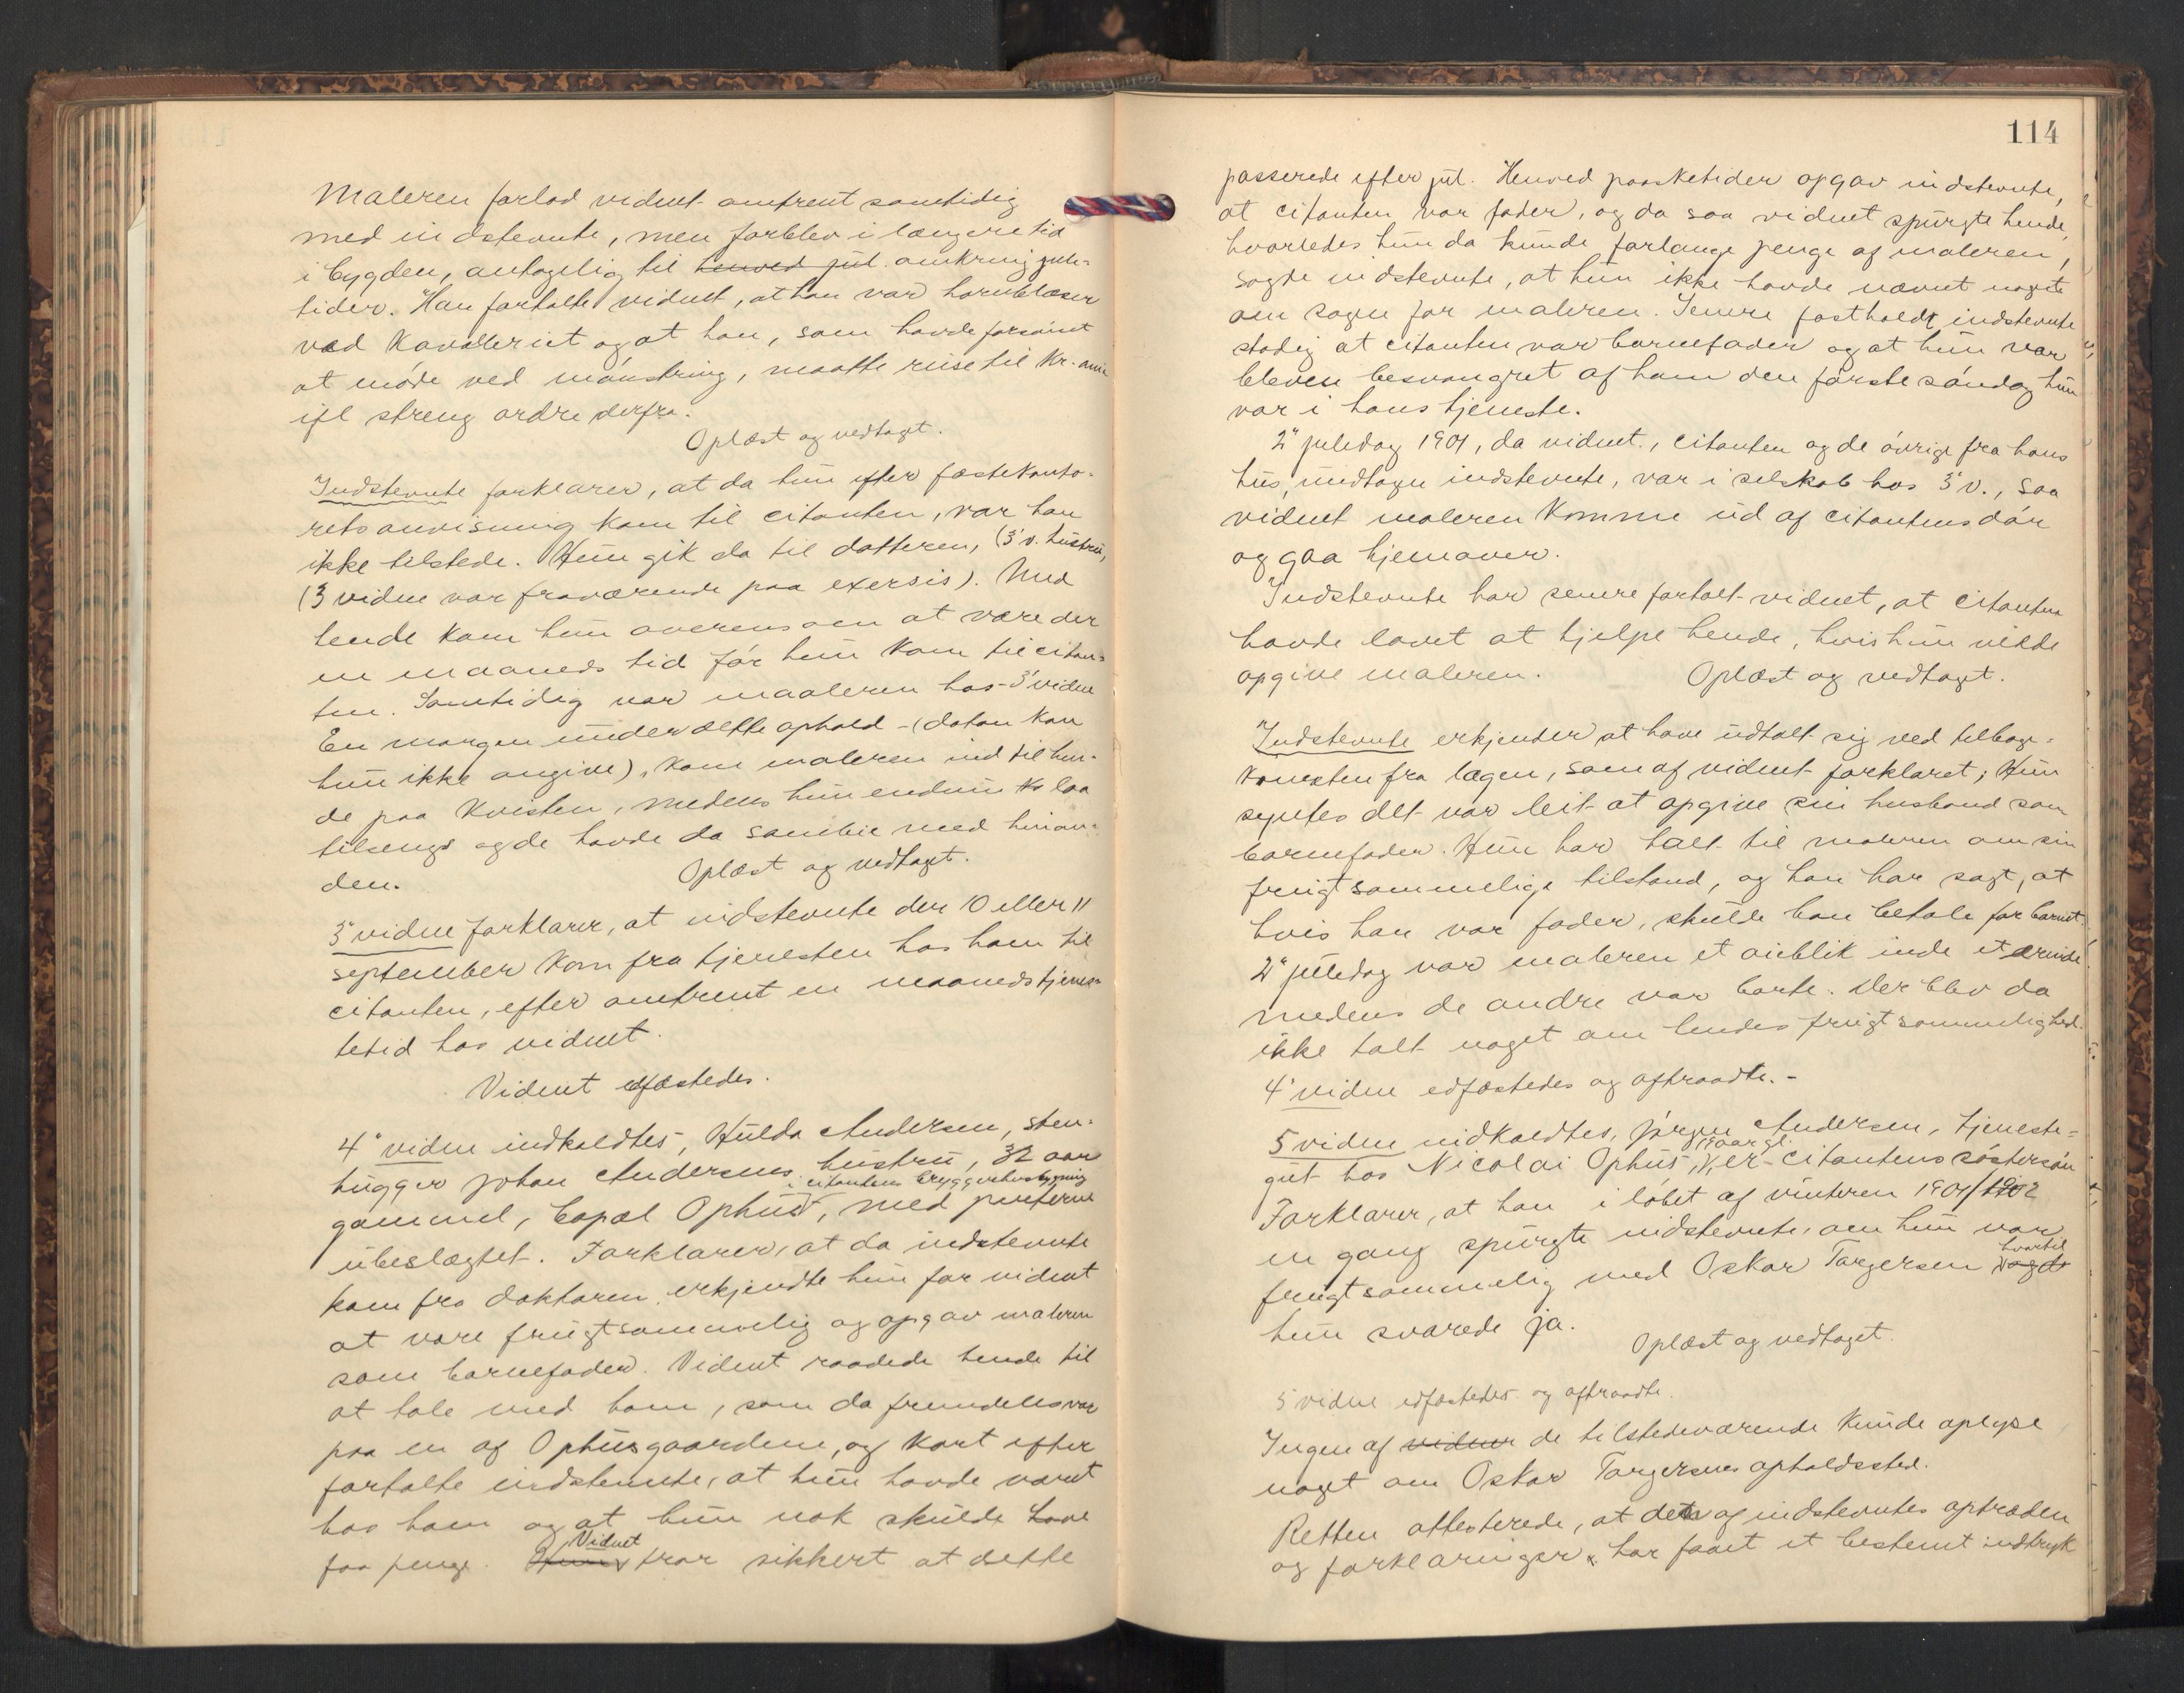 Maleren forlod vidnet omtrent samtidig
med indstevnte, men forblev i længere tid
i bygden, antagelig til henved jul omkring jule-
tider. Han fortalte vidnet, at han var hornblæser
ved Kavalleriet og at han, som havde forsømt
at møde ved mønstring, maatte reise til Kr.ania
ifl streng ordre derfra.
Oplæst og vedtaget.
Indstevnte forklarer, at da hun efter fæstekonto-
rets anvisning kom til citanten, var han
ikke tilstede. Hun gik da til datteren, (3' v. hustru,
(3 vidne var fraværende paa exersis). Med
hende kom hun overens om at være der
en maaneds tid før hun kom til citan-
ten. Samtidig var maaleren hos 3' vidne
En morgen under dette ophold - (datoen kan
hun ikke angive), kom maleren ind til hen-
de paa kvisten, medens hun endnu laa
tilsengs og de havde da samleie med hinan-
den.
Oplæst og vedtaget.
3" vidne forklarer, at indstevnte den 10 eller 11
september kom fra tjenesten hos ham til
citanten, efter omtrent en maaneds tjenes-
tetid hos vidnet.
Vidnet edfæstedes.
4" vidne indkaldtes, Hulda Andersen, sten-
hugger Johan Andersens hustru, 32 aar
i citantens bryggerhusbygning
gammel, bopæl Ophus, med parterne
ubeslægtet. Forklarer, at da indstevnte
kom fra doktoren erkjendte hun for vidnet
at være frugtsommelig og opgav maleren
som barnefader. Vidnet raadede hende til
at tale med ham, som da fremdeles var
paa en af Ophusgaardene, og kort efter
fortalte indstevnte, at hun havde været
hos ham og at hun nok skulde have
Vidnet
faa penge. Hun tror sikkert at dette
114
passerede efter jul. Henved paasketider opgav indstevnte,
at citanten var fader, og da saa vidnet spurgte hende,
hvorledes hun da kunde forlange penge af maleren,
sagde indstevnte, at hun ikke havde nævnt noget
om sagen for maleren. Senere fastholdt indstevnte
stadig at citanten var barnefader og at hun var
bleven besvangret af ham den første søndag hun
var i hans tjeneste.
2" juledag 1901, da vidnet, citanten og de øvrige fra hans
hus, undtagen indstevnte, var i selskab hos 3" v., saa
vidnet maleren komme ud af citantens dør
og gaa hjemover.
Indstevnte har senere fortalt vidnet, at citanten
havde lovet at hjelpe hende, hvis hun vilde
opgive maleren.
Oplæst og vedtaget.
Indstevnte erkjender at have udtalt sig ved tilbage-
komsten fra lægen, som af vidnet forklaret; Hun
syntes det var leit at opgive sin husbond som
barnefader. Hun har talt til maleren om sin
frugtsommelige tilstand, og han har sagt, at
hvis han var fader, skulle han betale for barnet.
2" juledag var maleren et øieblik inde et ærinde
medens de andre var borte. Der blev da
ikke talt noget om hendes frugtsommelighed.
4" vidne edfæstedes og aftraadte. -
5 vidne indkaldtes, Jørgen Andersen, tjeneste-
gut hos Nicolai Ophus, er citantens søstersøn
Forklarer, at han i løbet af vinteren 1901/1902
en gang spurgte indstevnte, om hun var
hvortil
frugtsommelig med Oskar Torgersen
hun svarede ja.
Oplæst og vedtaget.
5 vidne edfæstedes og aftraadte.
Ingen af vidner de tilstedeværende kunde oplyse
noget om Oskar Torgersens opholdssted.
Retten attesterede, at den af indstevntes optræden
og forklaringer har faaet et bestemt indtryk